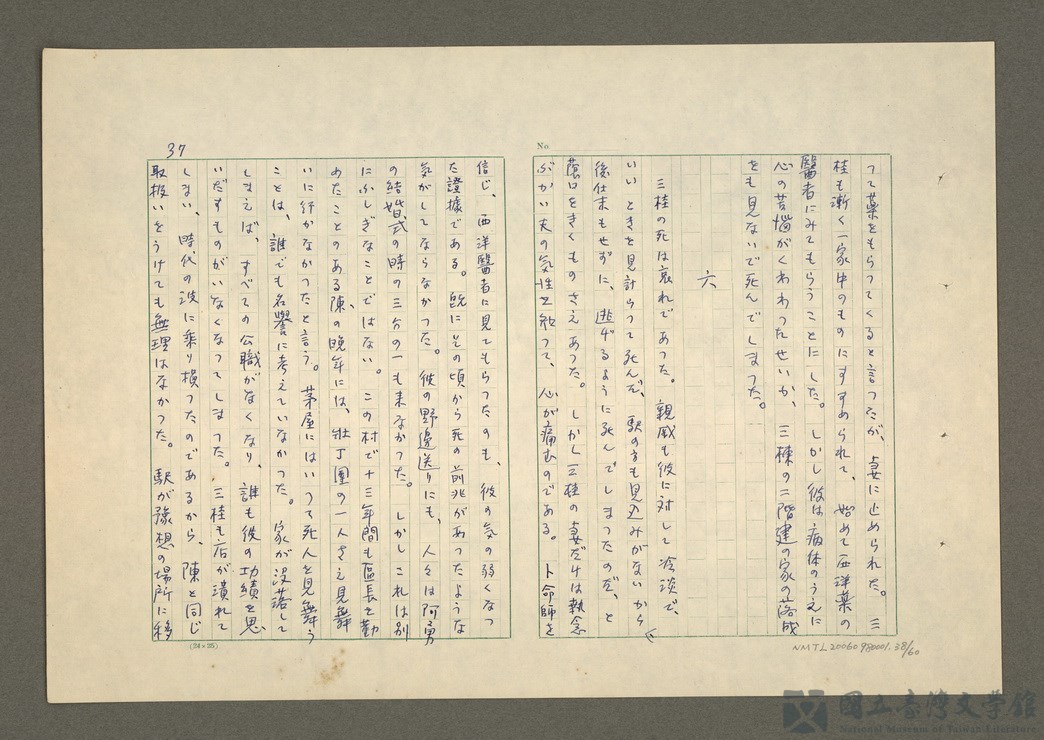 No.
つて薬をもらつてくると言つたが、妻に止められた。三
桂も漸く一家中のものにすすめられて、始めて西洋薬の
醫者にみてもらうことにした。しかし彼は病体のうえに
心の苦惱がくわわつたせいか、三棟の二階建の家の落成
をも見ないで死んでしまつた。
六
三桂の死は哀れであつた。親戚も彼に対して冷淡で、
いいときを見計らつて死んだ、駅の方も見込みがないから
後仕末もせずに、逃げるように死んでしまつたのだ、と
蔭口をきくものさえあつた。しかし三桂の妻だけは執念
ぶかい夫の気性を知つて、心が痛むのである。卜命師を
37
信じ、西洋醫者に見てもらつたのも、彼の気の弱くなつ
た證據である。既にその頃から死の前兆があつたような
気がしてならなかつた。彼の野邊送りにも、人々は阿勇
の結婚式の時の三分の一も来なかつた。しかしこれは別
にふしぎなことではない。この村で十三年間も區長を勤
めたことのある陳の晩年には、壮丁團の一人さえ見舞
いに行かなかつたと言う。茅屋にはいつて死人を見舞う
ことは、誰でも名譽に考えていなかつた。家が没落して
しまえば、すべての公職がなくなり、誰も彼の功績を思
いだすものがいなくなつてしまつた。三桂も店が潰れて
しまい、時代の波に乗り損つたのであるから、陳と同じ
取扱いをうけても無理はなかつた。駅が豫想の場所に移
(24×25)
NMTL20060980001.38/60
國立臺灣文學館
National Museum of Taiwan Literature